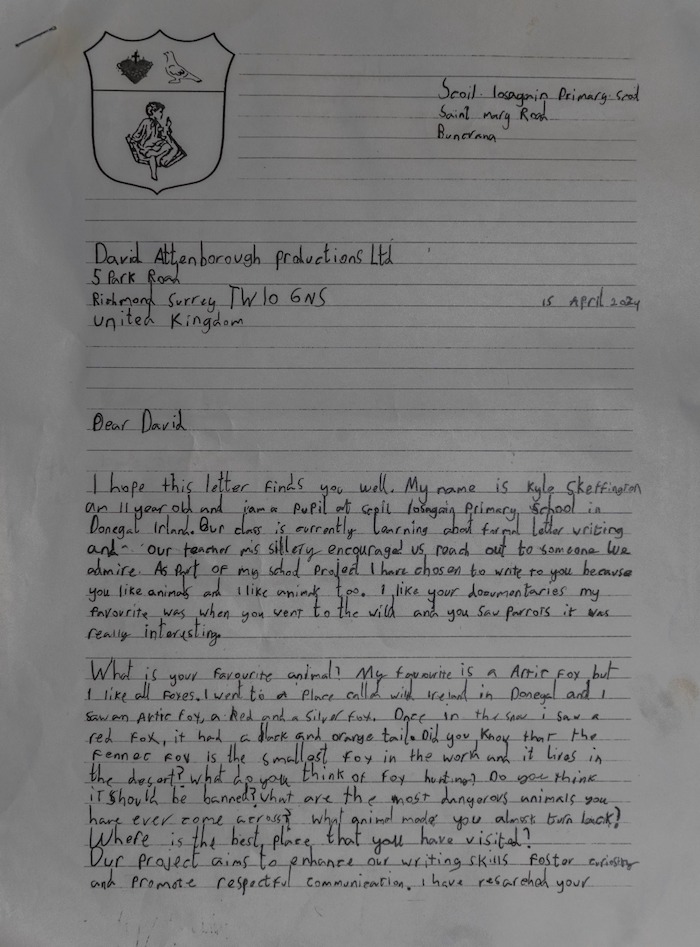 Scoil Iosagain Primary Scool
Saint mary Road
Buncrana
David Attenborough productions Ltd
5 Park Road
Richmond Surrey TW10 6NS
15 April 2024
united Kingdom
Dear David
I hope this letter finds you well. My name is Kyle Skeffington
am 11 year old and iam a pupil at scoil Iosagain Primary School in
Donegal Irland. Our class is currently learning about formal letter writing
and our teacher mis sillery encouraged us reach out to someone we
admire. As part of my school project I have chosen to write to you because
you like animals and I like animals too. I like your documentaries my
favourite was when you went to the wild and you saw parrots it was
really interesting.
What is your favourite animal? My favourite is a Artic Fox but
I like all Foxes. I went to a place called wild Ireland in Donegal and I
saw an Artic fox, a Red and a Silver fox. Once in the snow i saw a
red fox, it had a black and orange tail. Did you know that the
Fennec fox is the smallest fox in the world and it lives in
the desert? What do you think of fox hunting? Do you think
it should be banned? What are the most dangerous animals you
have ever come across? What animal made you almost turn back?
Where is the best place that you have visited?
Our project aims to enhance our writing skills foster curiosity
and promote respectful communication. I have resarched your